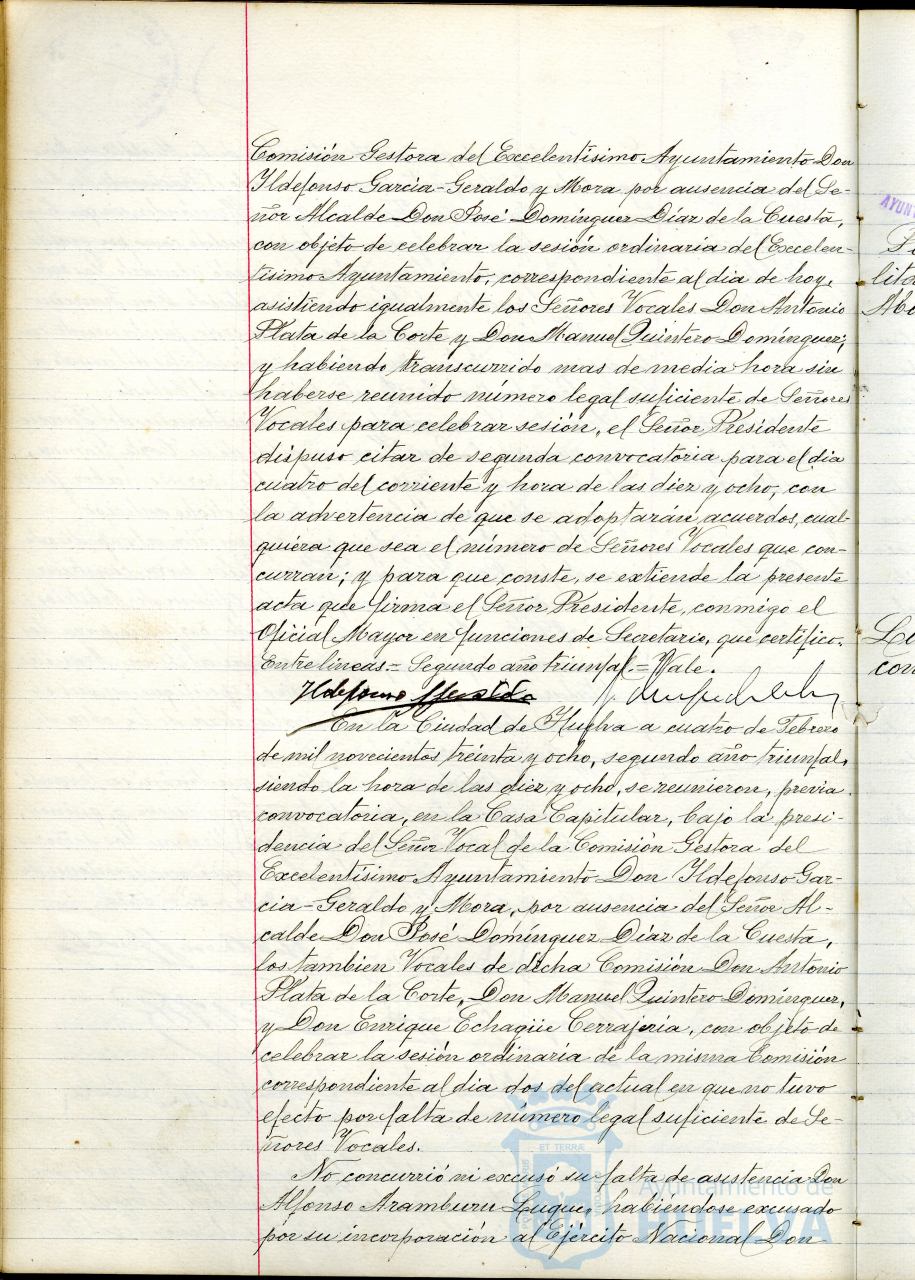 Comisión Gestora del Excelentísimo Ayuntamiento Don
Ildefonso García-Geraldo y Mora por ausencia del Se-
ñor Alcalde Don José Domínguez Díaz de la Cuesta,
con objeto de celebrar la sesión ordinaria del Excelen-
tísimo Ayuntamiento, correspondiente al dia de hoy,
asistiendo igualmente los Señores Vocales Don Antonio
Plata de la Corte y Don Manuel Quintero Domínguez;
y habiendo transcurrido mas de media hora sin
haberse reunido número legal suficiente de Señores
Vocales para celebrar sesión, el Señor Presidente
dispuso citar de segunda convocatoria para el dia
cuatro del corriente y hora de las diez y ocho, con
la advertencia de que se adoptarán acuerdos, cual-
quiera que sea el número de Señores Vocales que con-
curran; y para que conste, se extiende la presente
acta que firma el Señor Presidente, conmigo el
Oficial Mayor en funciones de Secretario, que certifico.
Entre lineas = Segundo año triunfal = Vale.
Ildefonso
En la Ciudad de Huelva a cuatro de Febrero
de mil novecientos treinta y ocho, segundo año triunfal,
siendo la hora de las diez y ocho, se reunieron, previa
convocatoria, en la Casa Capitular, bajo la presi-
dencia del Señor Vocal de la Comisión Gestora del
Excelentísimo Ayuntamiento Don Ildefonso Gar-
cia-Geraldo y Mora, por ausencia del Señor Al-
calde Don José Domínguez Díaz de la Cuesta,
los tambien Vocales de dicha Comisión Don Antonio
Plata de la Corte, Don Manuel Quintero Domínguez,
y Don Enrique Echagüe Cerrajería, con objeto de
celebrar la sesión ordinaria de la misma Comisión
correspondiente al dia dos del actual en que no tuvo
efecto por falta de número legal suficiente de Se-
ñores Vocales.
No concurrió ni excusó su falta de asistencia Don
Alfonso Aramburu Luque, habiéndose excusado
por su incorporación al Ejército Nacional Don
ET TERRÆ
Ayuntamiento de
HUELVA
AYUNT
lita
con